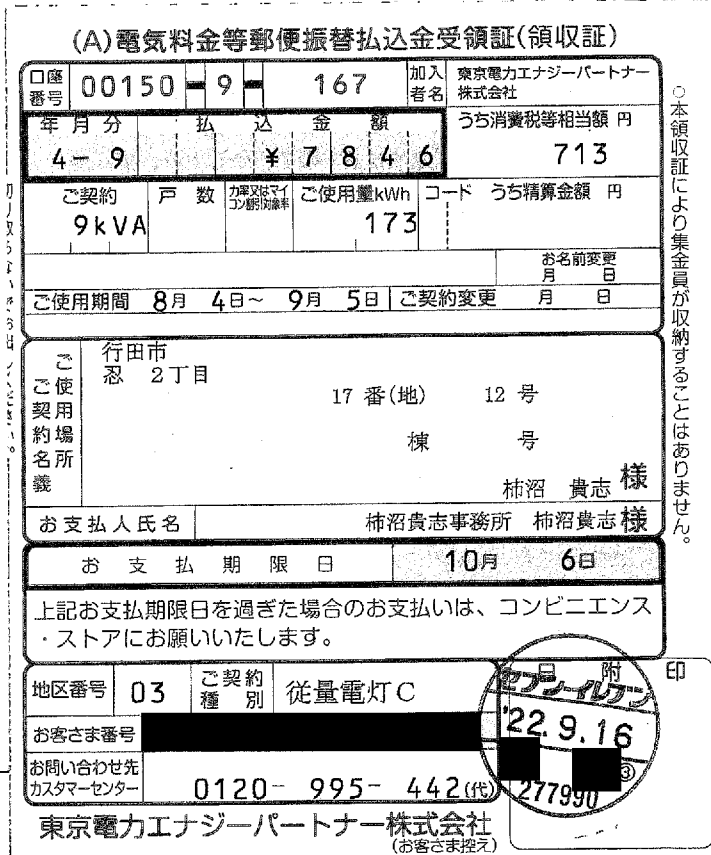 (A)電気料金等郵便振替払込金受領証(領収証)
口座番号 00150-9-167 加入者名 東京電力エナジーパートナー株式会社
年月分 払込金額 うち消費税等相当額 円
4-9 ¥7846 713
ご契約 戸数 力率又はマイコン割引対象率 ご使用量kWh コード うち精算金額 円
9kVA 173
お名前変更
月 日
ご使用期間 8月 4日~ 9月 5日 ご契約変更 月 日
ご使用場所
ご契約名義
行田市
忍 2丁目
17 番(地) 12 号
棟 号
柿沼 貴志 様
お支払人氏名 柿沼貴志事務所 柿沼貴志様
お支払期限日 10月 6日
上記お支払期限日を過ぎた場合のお支払いは、コンビニエンス
・ストアにお願いいたします。
地区番号 03 ご契約種別 従量電灯C
日附印
セブン-イレブン
'22.9.16
③
277990
お客さま番号
お問い合わせ先
カスタマーセンター 0120-995-442(代)
東京電力エナジーパートナー株式会社
(お客さま控え)
○本領収証により集金員が収納することはありません。